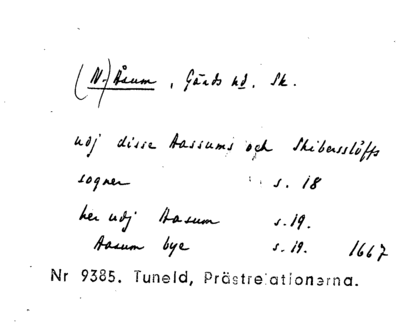 (N.) Åsum, Gärds hd. Sk.
udj disse Aassums och Skibersslöffs
sogner s. 18
her udj Aasum s. 19.
Aasum bye s. 19. 1667
Nr 9385. Tuneld, Prästrelationerna.